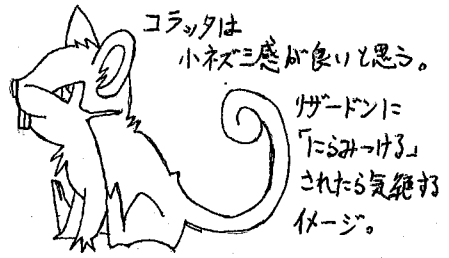 コラッタは
小ネズミ感が良いと思う。
リザードンに
「にらみつける」
されたら気絶する
イメージ。